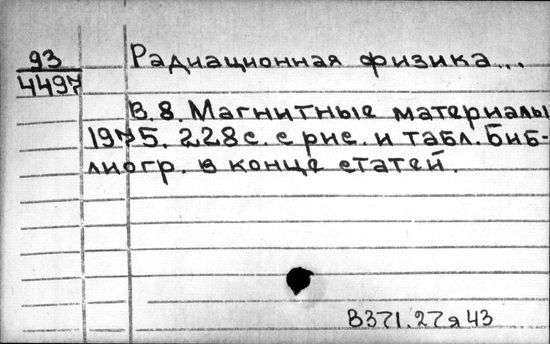 93
4497
Радиационная физика...
В.8. Магнитные материалы
1975. 228 с. с рис. и табл. Биб-
лиогр. в конце статей.
В371.27я43